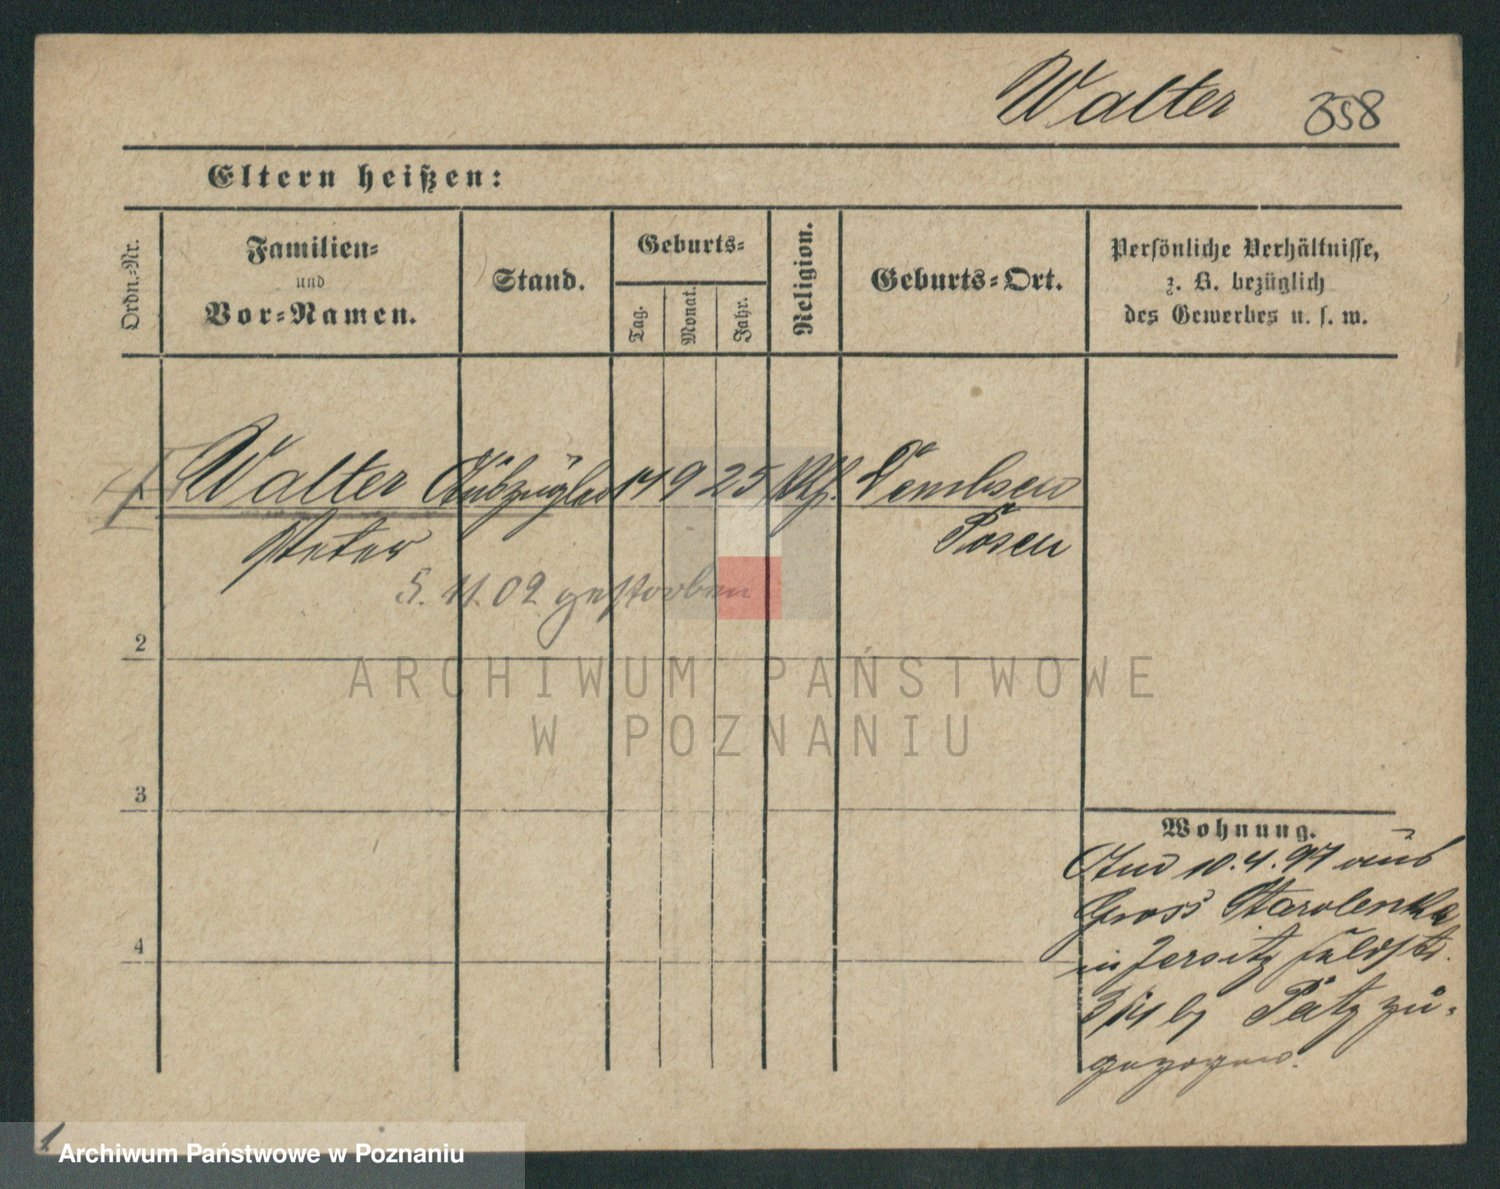 Walter 358
Eltern heißen:
Ordn.-Nr.
Familien-
und
Vor-Namen.
Stand.
Geburts-
Tag.
Monat.
Jahr.
Religion.
Geburts-Ort.
Persönliche Verhältnisse,
z. B. bezüglich
des Gewerbes u. s. w.
Walter Auszügler 14 9 25 Kth. Dembsen
Peter Posen
5. 11. 02 gestorben
2
3
4
Wohnung.
Am 10. 4. 97 aus
Gross Starolenka
in Jersitz Feldstr.
3/4 bei Patz zu-
gezogen.
ARCHIWUM PAŃSTWOWE
W POZNANIU
1
Archiwum Państwowe w Poznaniu